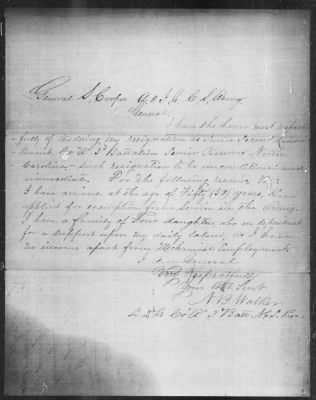 General S. Cooper A & I G C S Army
General
I have the honor most respect
fully of tendering my resignation as Junior Second Lieu
tenant Co A 3d Battalion Junior Reserves North
Carolina, such resignation to be unconditional and
immediate. For the following reasons, Viz:
I have arrived at the age of Fifty years
applied for exemption from service in the Army.
I have a family of Four daughters who are dependent
for a support upon my daily labor, as I have
no income apart from Employment
I am General
Very Respectfully
Your Obt Servt
N B Walker
Co A 3 Batt N C J. Res.